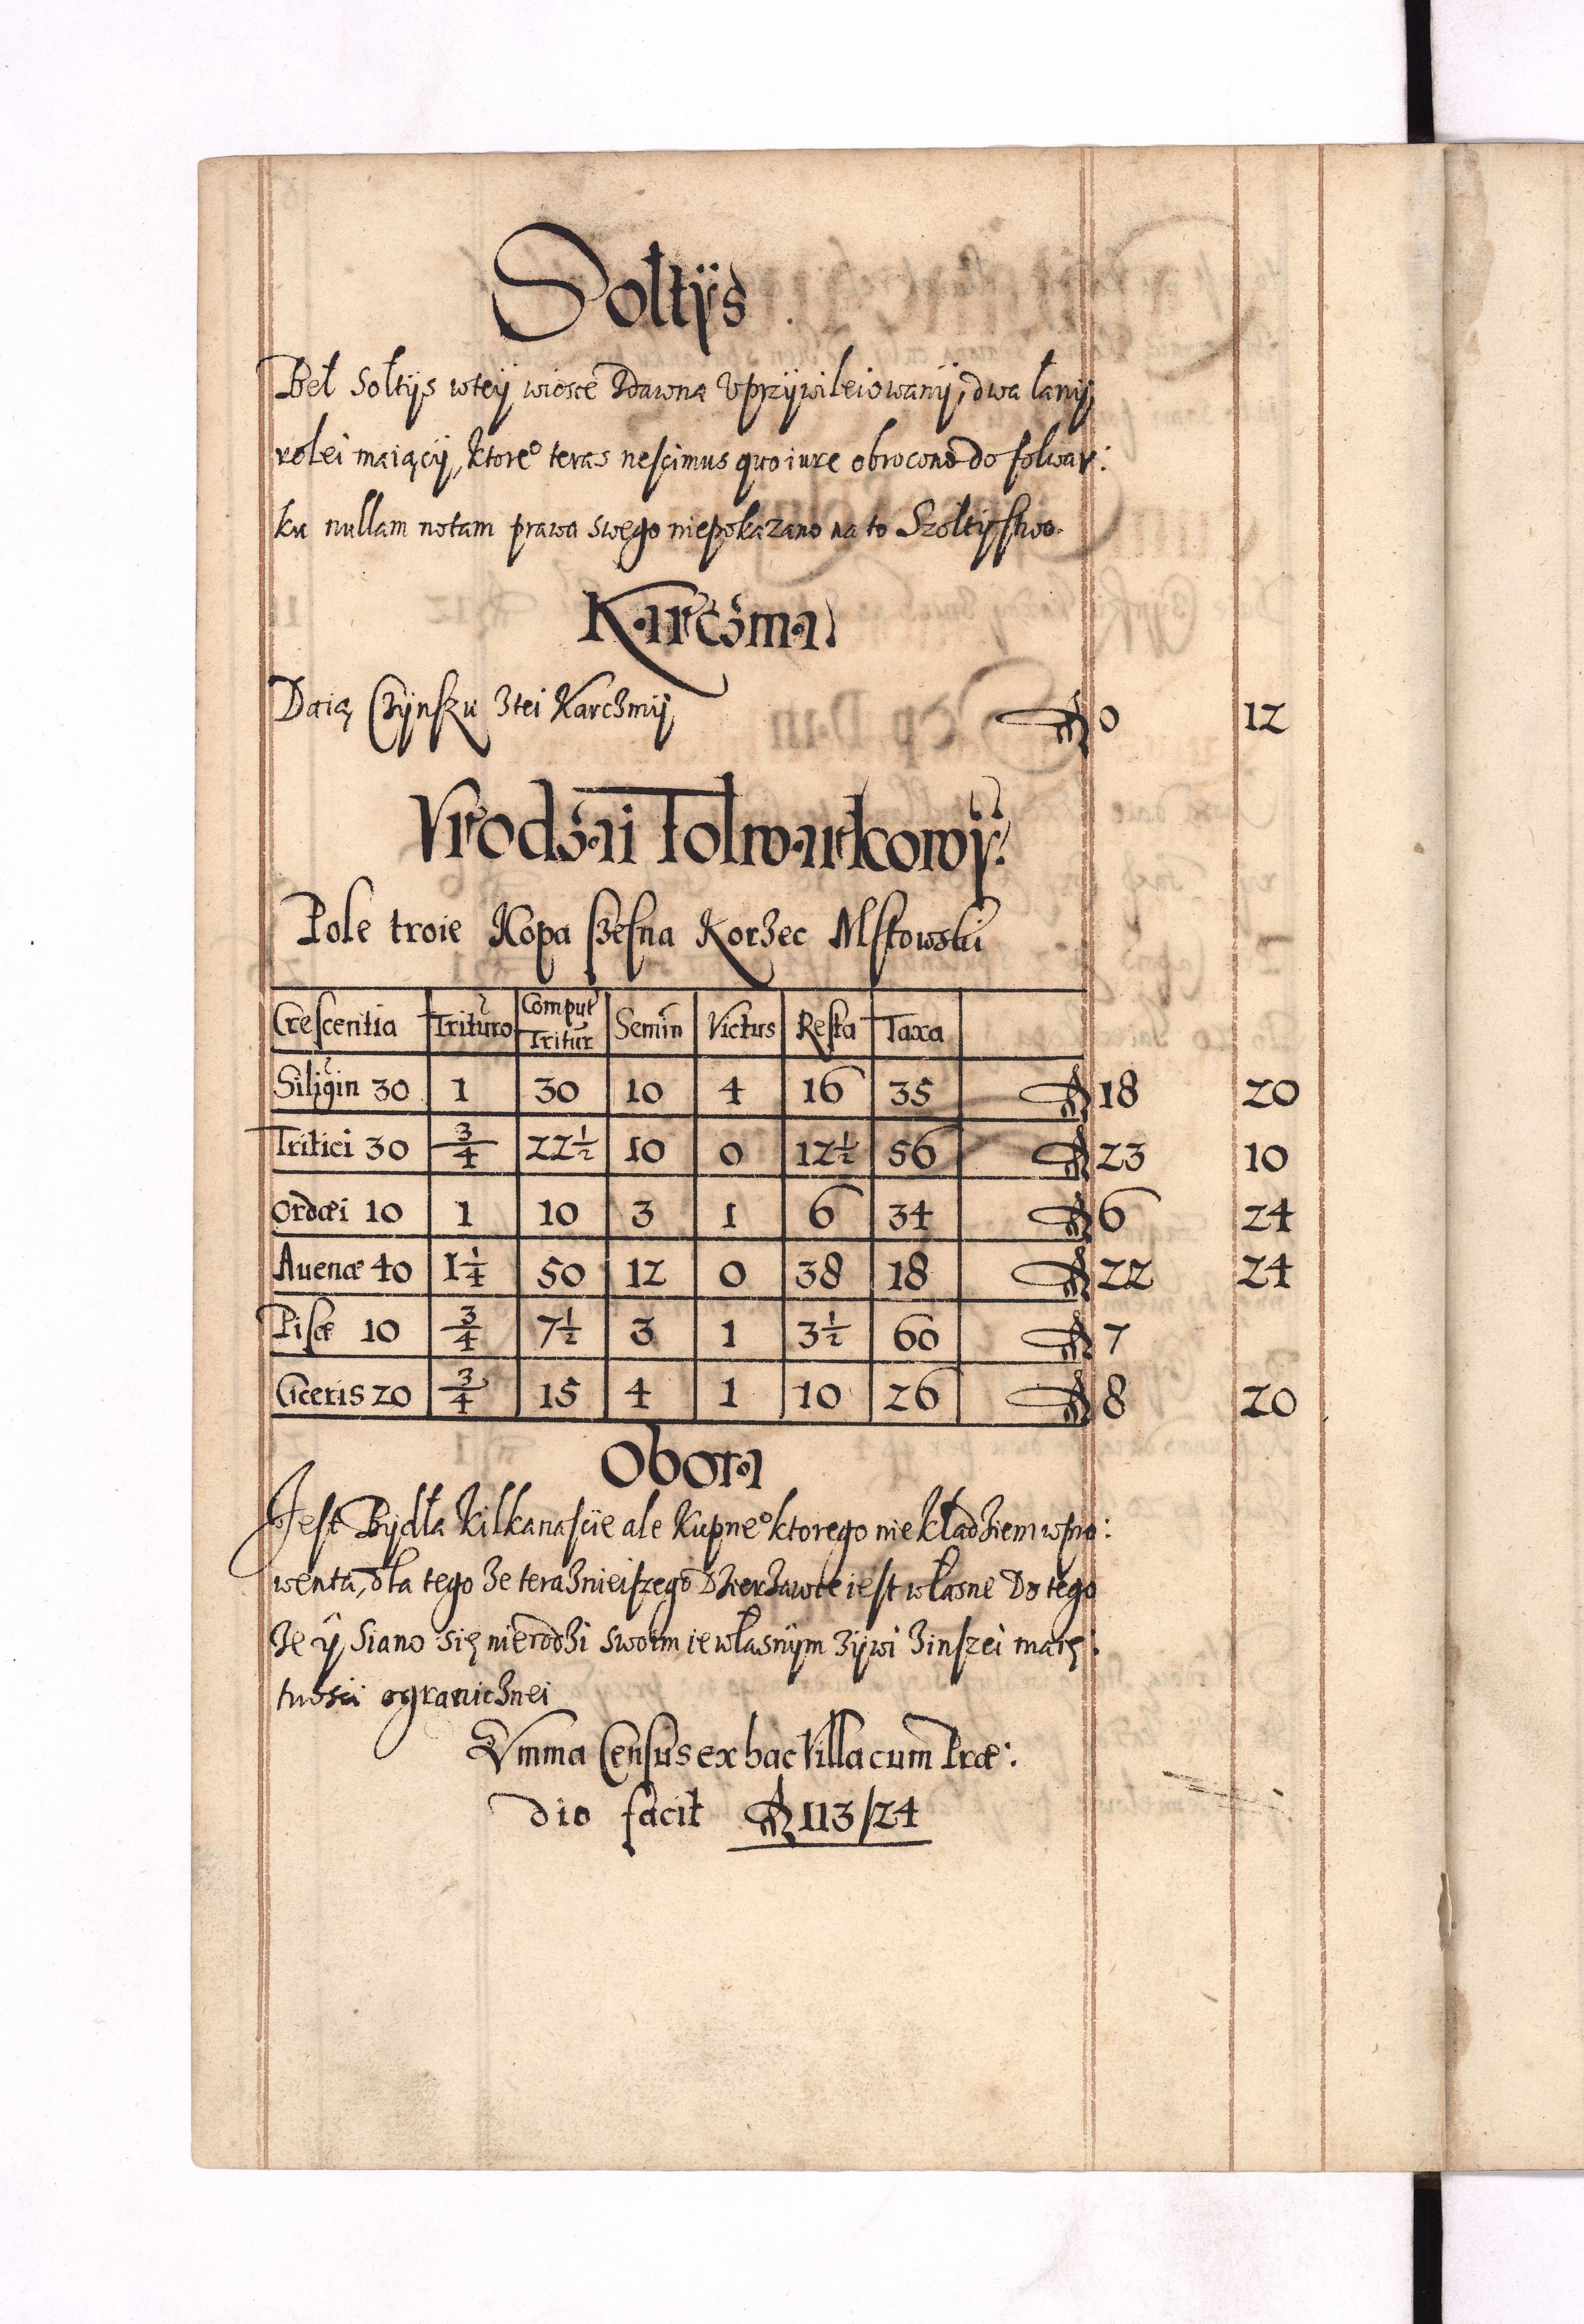 Sołtÿs
Beł Sołtÿs wteÿ wiosce Zdawna Vprzÿwileiowanÿ, dwa łanÿ
rolei maiącÿ, ktore° teras nescimus quo iure obrocono do folwar:
ku nullam notam prawa swego niepokazano na to Szołtÿstwo.
Karczma
Daią Czÿnszu ztei Karczmÿ fl 0 12
Vrodzai Folwarkowÿ
Pole troie Kopa szesna Korzec Mstowski
Crescentia Trituro Comput Tritur Semin Victus Resta Taxa
Siligin 30 1 30 10 4 16 35 fl 18 20
Tritici 30 3/4 22 1/2 10 0 12 1/2 56 fl 23 10
Ordæi 10 1 10 3 1 6 34 fl 6 24
Auenæ 40 1 1/4 50 12 0 38 18 fl 22 24
Pisæ 10 3/4 7 1/2 3 1 3 1/2 60 fl 7
Ciceris 20 3/4 15 4 1 10 26 fl 8 20
Obora
Jest Bÿdła Kilkanaście ale Kupne° ktorego niekładziem wpro:
wenta, dla tego że teraznieiszego Dzierzawce iest własne Do tego
że ÿ Siano się nierodzi swoim ie własnÿm zÿwi zinszei maię:
tności ogranicznei
Summa Census ex hac Villa cum Præ:
dio facit fl 113/24